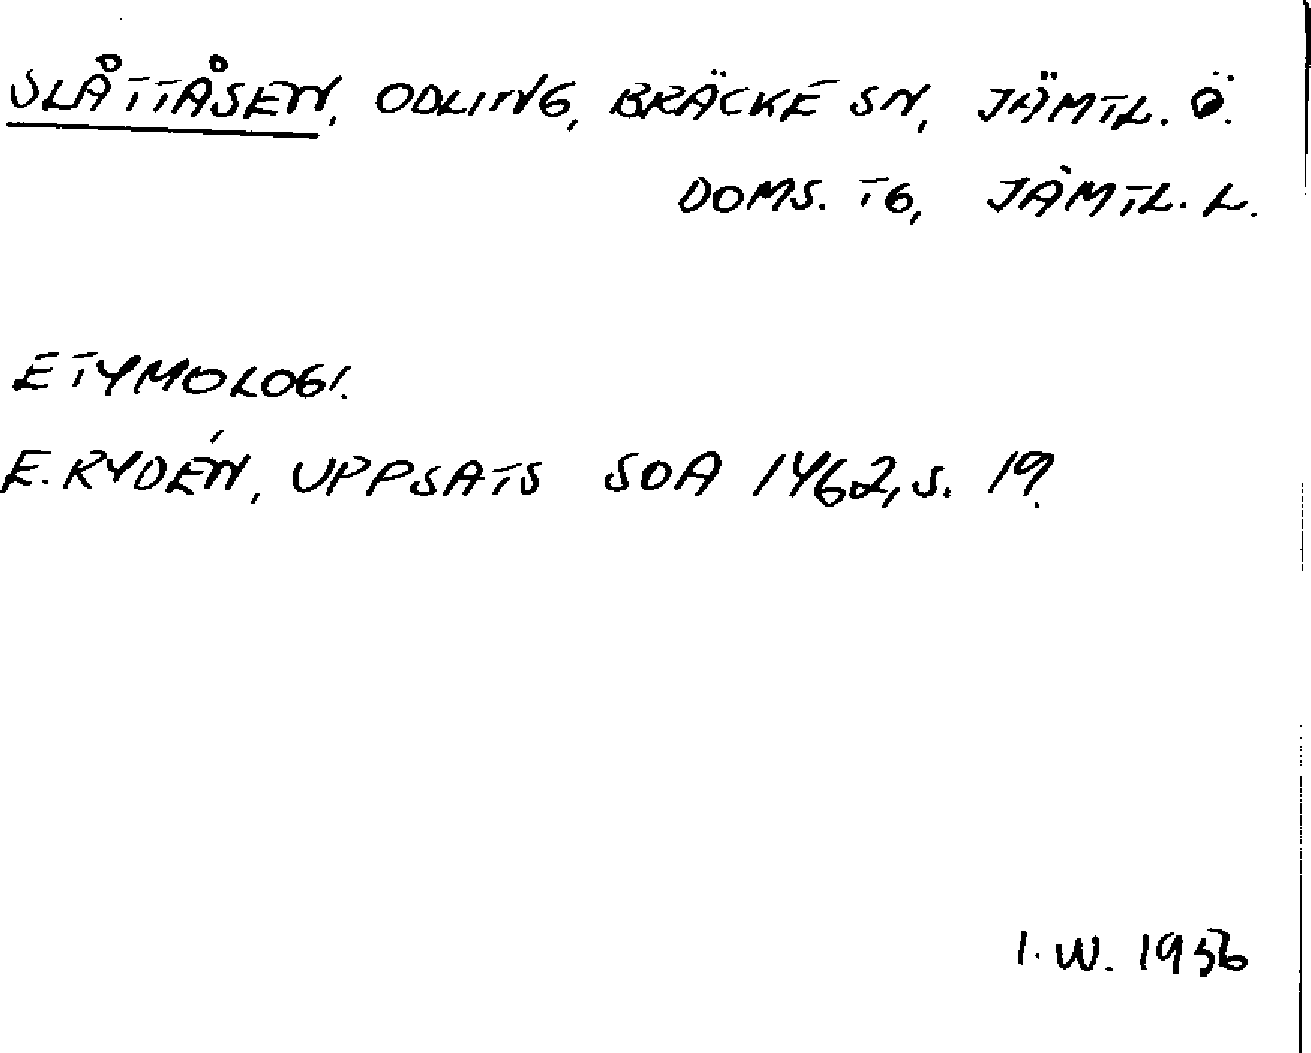 SLÅTTÅSEN, ODLING, BRÄCKE SN, JÄMTL. Ö.
DOMS. TG, JÄMTL. L.
ETYMOLOGI.
E. RYDÉN, UPPSATS SOA 1462, s. 19.
I. W. 1956